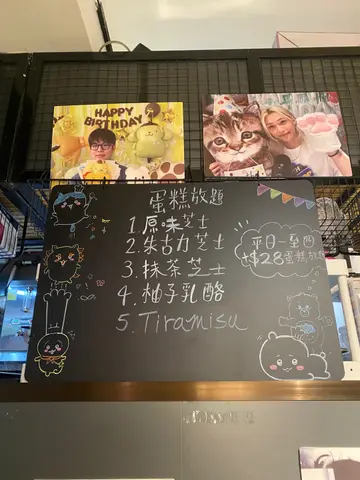 HAPPY
BIRTHDAY
蛋糕放題
1. 原味芝士
2. 朱古力芝士
3. 抹茶芝士
4. 柚子乳酪
5. Tiramisu
平日一至四
+$28蛋糕放題